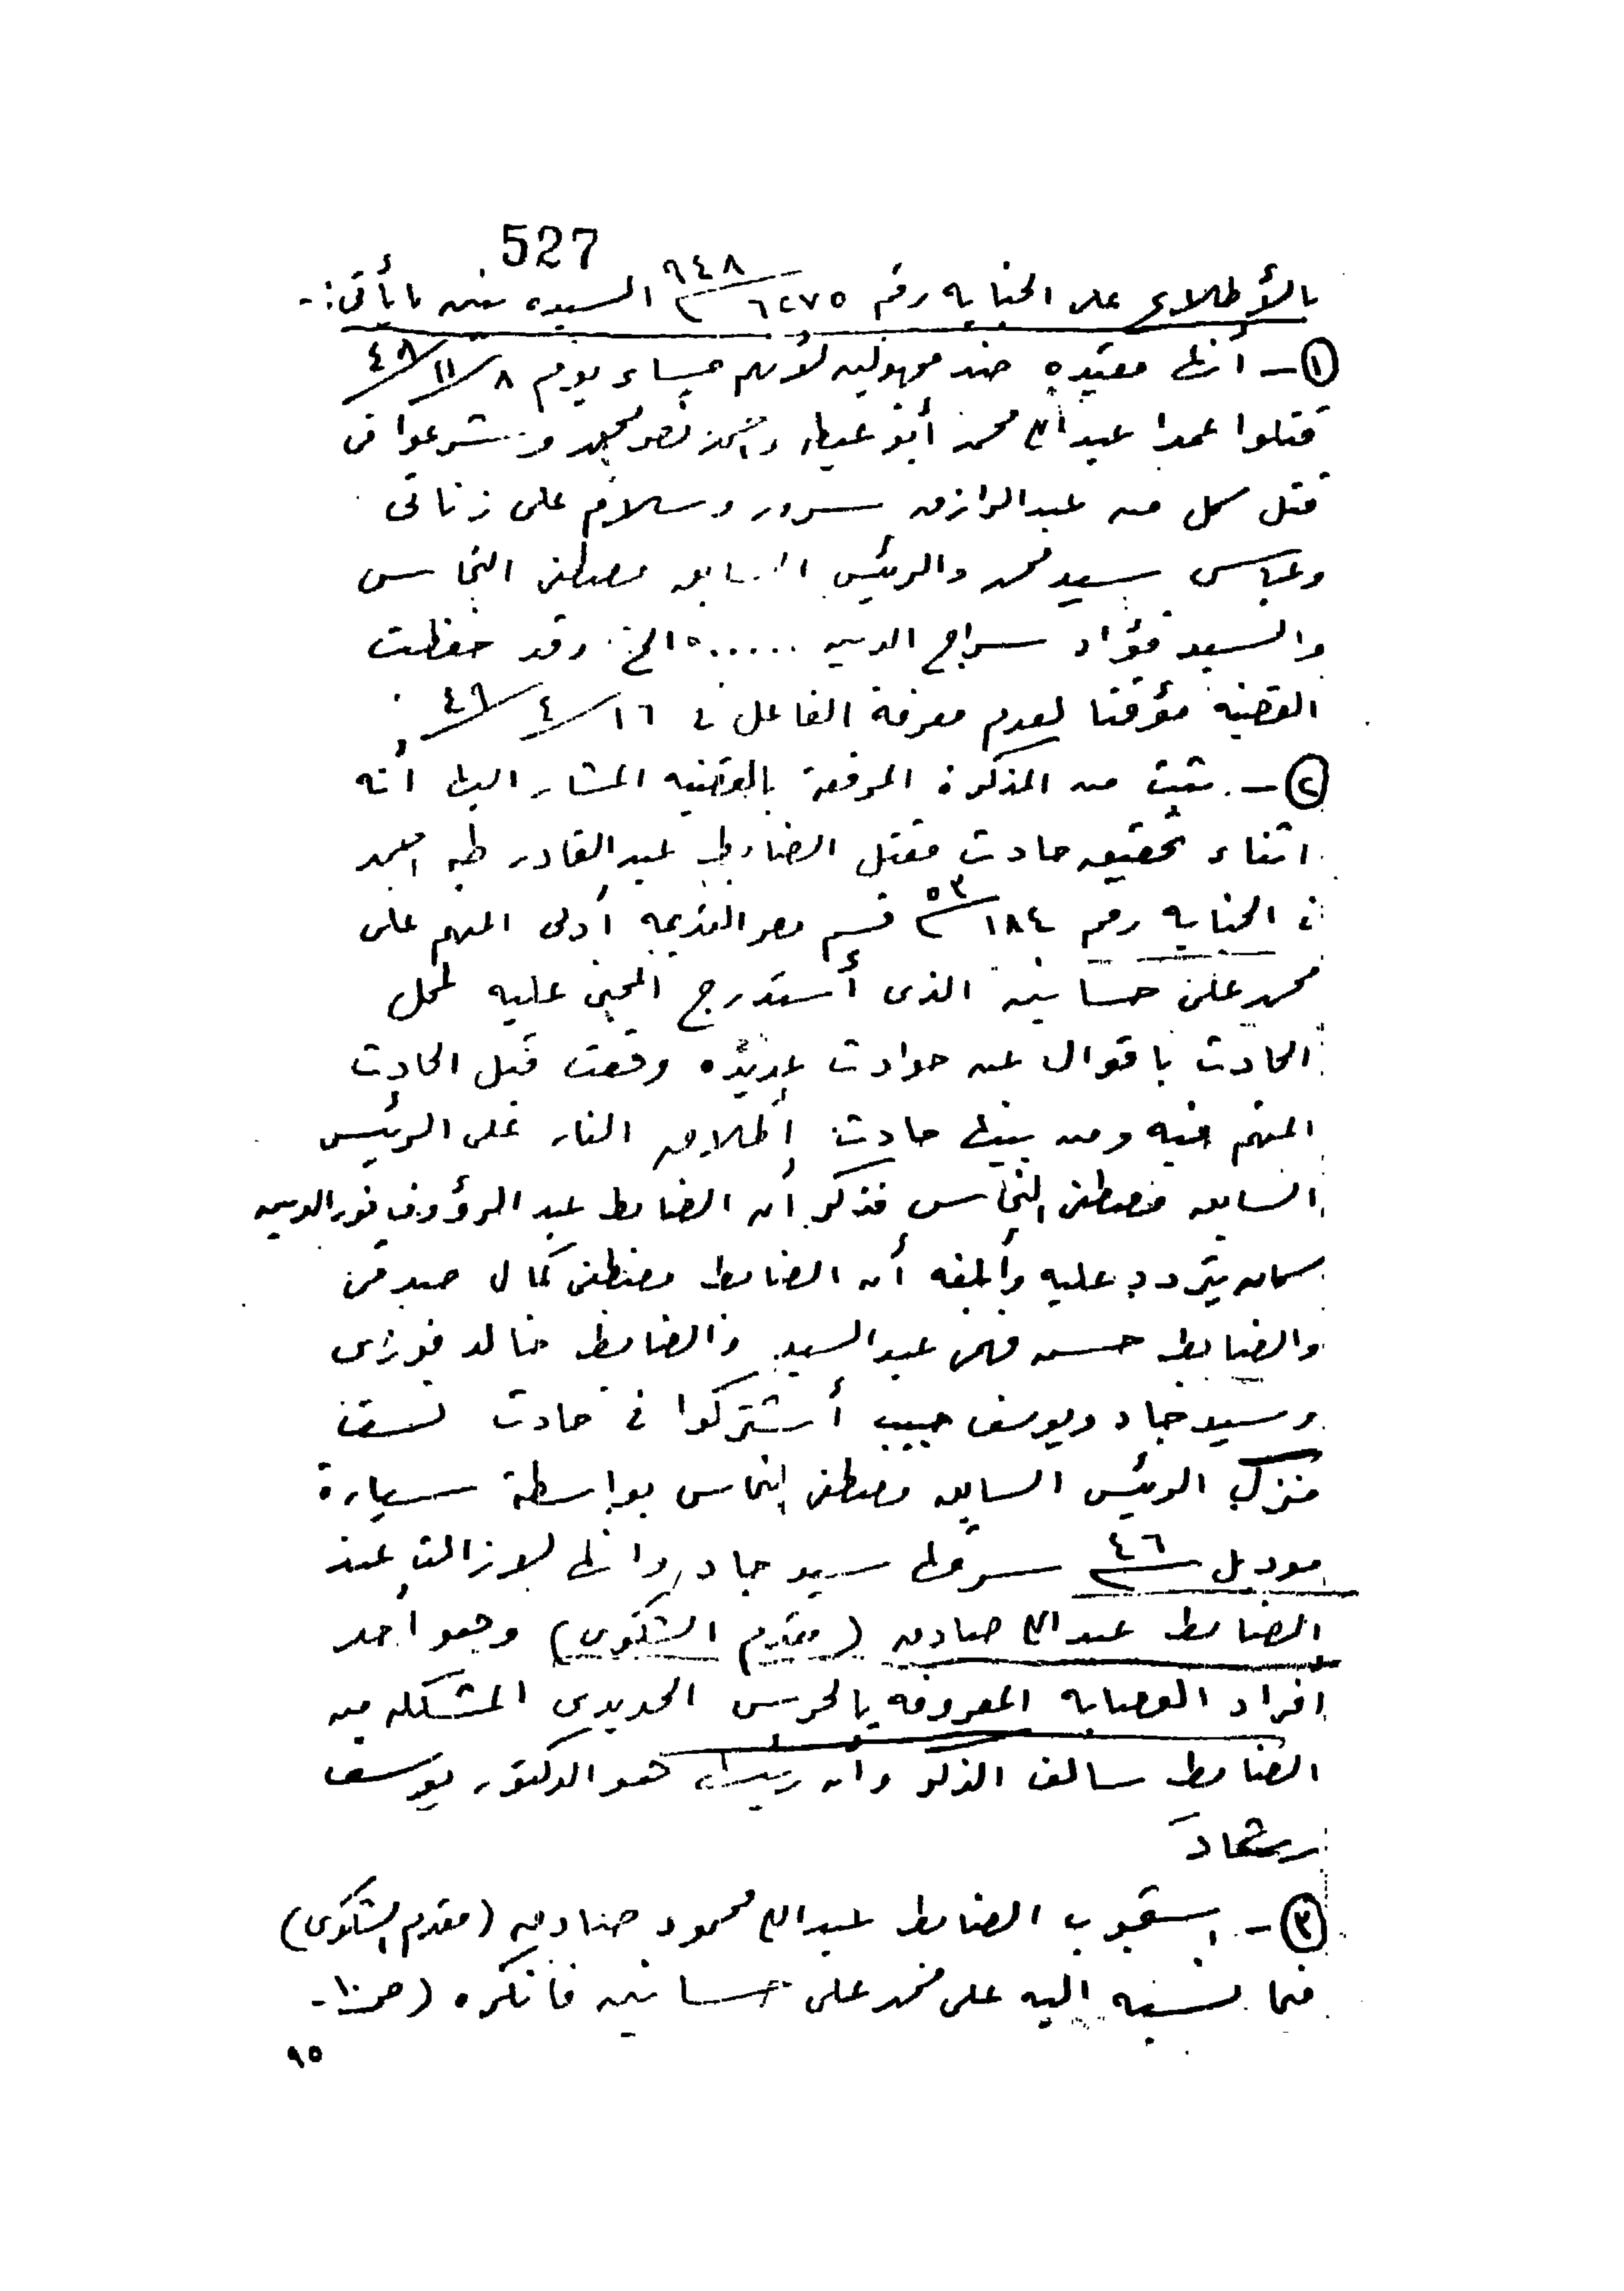 527
بالأطلاع على الجنايه رقم ٦٢٧٥ / ٩٤٨ السيده تبين ما يأتى :-
١ - أنها مقيده ضد مجهولين لأنهم مساء يوم ٨/١١/٤٨
قتلوا عمدا عبد الله محمد أبو عيطه و نصر محمد وشرعوا فى
قتل كل من عبد الرازق سرور وسلام على زناتى
وعباس سيد محمد والرئيس السابق مصطفى النحاس
والسيد فؤاد سراج الدين ...... الخ. وقد حفظت
القضيه مؤقتا لعدم معرفة الفاعل فى ١٦/٤/٤٩
٢ - ثبت من المذكرة المرفقة بالقضيه المشار اليها أنه
اثناء تحقيق حادث مقتل الضابط عبد القادر طه احمد
فى الجنايه رقم ١٨٤ / ٥٣ قسم مصر القديمه أدلى المتهم على
محمد على حسانين الذى أستدرج المجنى عليه لمحل
الحادث باقوال عن حوادث عديده وقعت قبل الحادث
المتهم فيه ومن بينها حادث إطلاق النار على الرئيس
السابق مصطفى النحاس فذكر أن الضابط عبد الرؤوف نور الدين
كان يتردد عليه وأبلغه أن الضابط مصطفى كمال صدقى
والضابط حسن فهمى عبد السيد والضابط خالد فوزى
وسيد جاد ويوسف حبيب أشتركوا فى حادث نسف
منزل الرئيس السابق مصطفى النحاس بواسطة سيارة
موديل ٤٦ سرقها سيد جاد وانها لازالت عند
الضابط عبد الله صادق (مقدم الشكوى) وهو أحد
أفراد العصابه المعروفه بالحرس الحديدى المشكله من
الضابط سالف الذكر وان رئيسها هو الدكتور يوسف
رشاد
٣ - استجوب الضابط عبد الله محمود صادق (مقدم الشكوى)
فيما نسبه اليه على محمد على حسانين فانكره (ص ١٠ -
٩٥